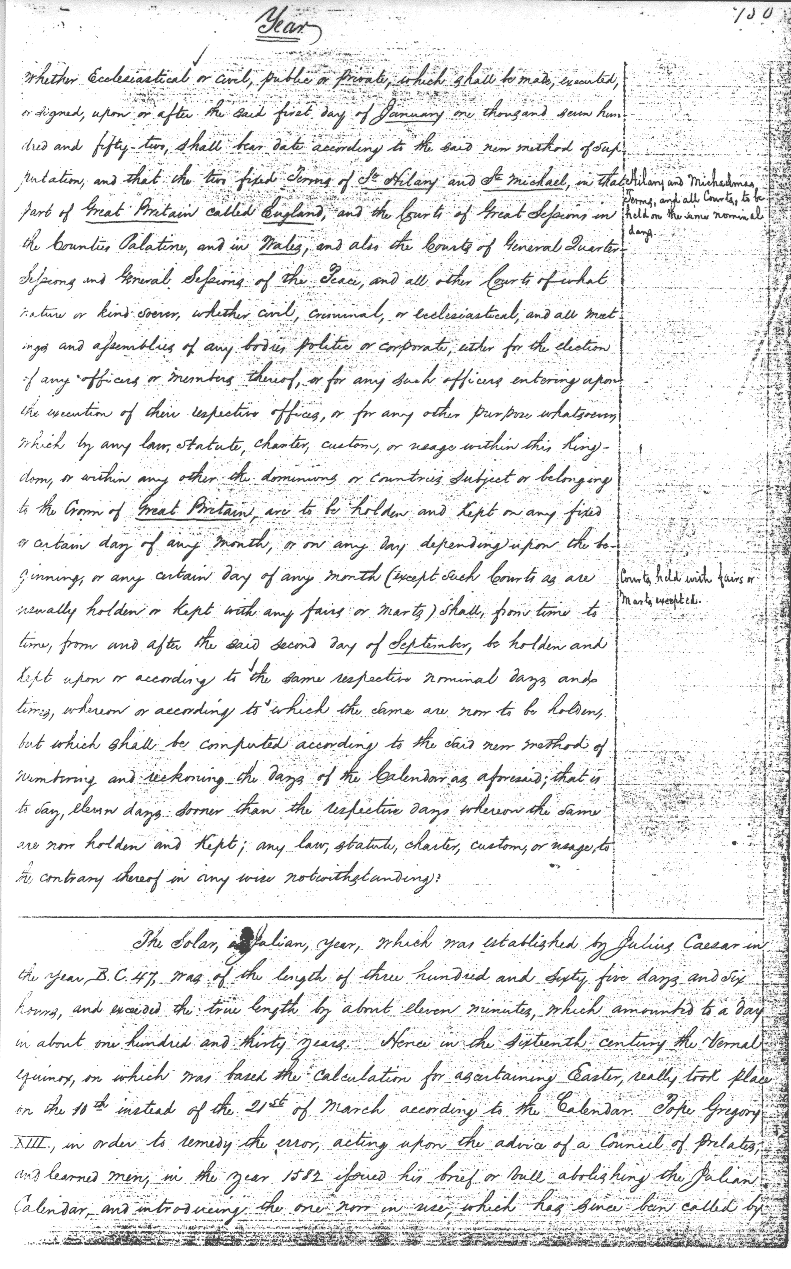 Year
150
whether Ecclesiastical or civil, public or private, which shall be made, executed,
or signed, upon or after the said first day of January one thousand seven hun-
dred and fifty-two, shall bear date according to the said new method of sup-
putation, and that the two fixed Terms of St Hilary and St Michael, in that
part of Great Britain called England, and the Courts of Great Sessions in
the Counties Palatine, and in Wales, and also the Courts of General Quarter-
Sessions and General Sessions of the Peace, and all other Courts of what
nature or kind soever, whether civil, criminal, or ecclesiastical, and all meet-
ings and assemblies of any bodies politic or corporate, either for the election
of any officers or members thereof, or for any such officers entering upon
the execution of their respective offices, or for any other purpose whatsoever,
which by any law, statute, charter, custom, or usage within this King-
dom, or within any other the dominions or countries subject or belonging
to the Crown of Great Britain, are to be holden and kept on any fixed
or certain day of any month, or on any day depending upon the be-
ginning, or any certain day of any month (except such Courts as are
usually holden or kept with any fairs or marts) shall, from time to
time, from and after the said second day of September, be holden and
kept upon or according to the same respective nominal days and
times, whereon or according to which the same are now to be holden,
but which shall be computed according to the said new method of
numbering and reckoning the days of the Calendar as aforesaid; that is
to say, eleven days sooner than the respective days whereon the same
are now holden and kept; any law, statute, charter, custom, or usage, to
the contrary thereof in any wise notwithstanding?
Hilary and Michaelmas
Terms, and all Courts, to be
held on the same nominal
days.
Courts held with fairs or
Marts excepted.
The Solar, Julian, year, which was established by Julius Caesar in
the year B.C. 47, was of the length of three hundred and sixty five days and six
hours, and exceeded the true length by about eleven minutes, which amounted to a day
in about one hundred and thirty years. Hence in the sixteenth century the Vernal
equinox, on which was based the calculation for ascertaining Easter, really took place
on the 10th instead of the 21st of March according to the Calendar. Pope Gregory
XIII, in order to remedy the error, acting upon the advice of a Council of Prelates,
and learned men, in the year 1582 issued his brief or bull abolishing the Julian
Calendar, and introducing the one now in use, which has since been called by